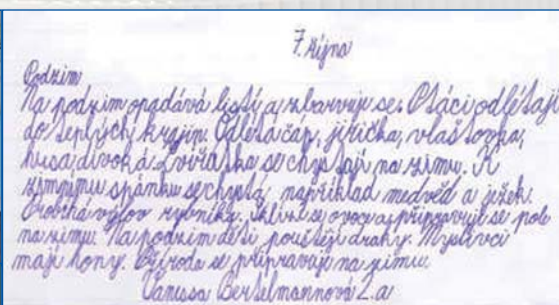 7. října
Podzim
Na podzim opadává listí a zbarvuje se. Ptáci odlétají
do teplých krajin. Odlétá čáp, jiřička, vlaštovka,
husa divoká. Zvířátka se chystají na zimu. K
zimnímu spánku se chystá například medvěd a ježek.
Probíhá výlov rybníků. Sklízí se ovoce a připravuje se pole
na zimu. Na podzim děti pouštějí draky. Myslivci
mají hony. Příroda se připravuje na zimu.
Vanessa Bertelmannová 2.a